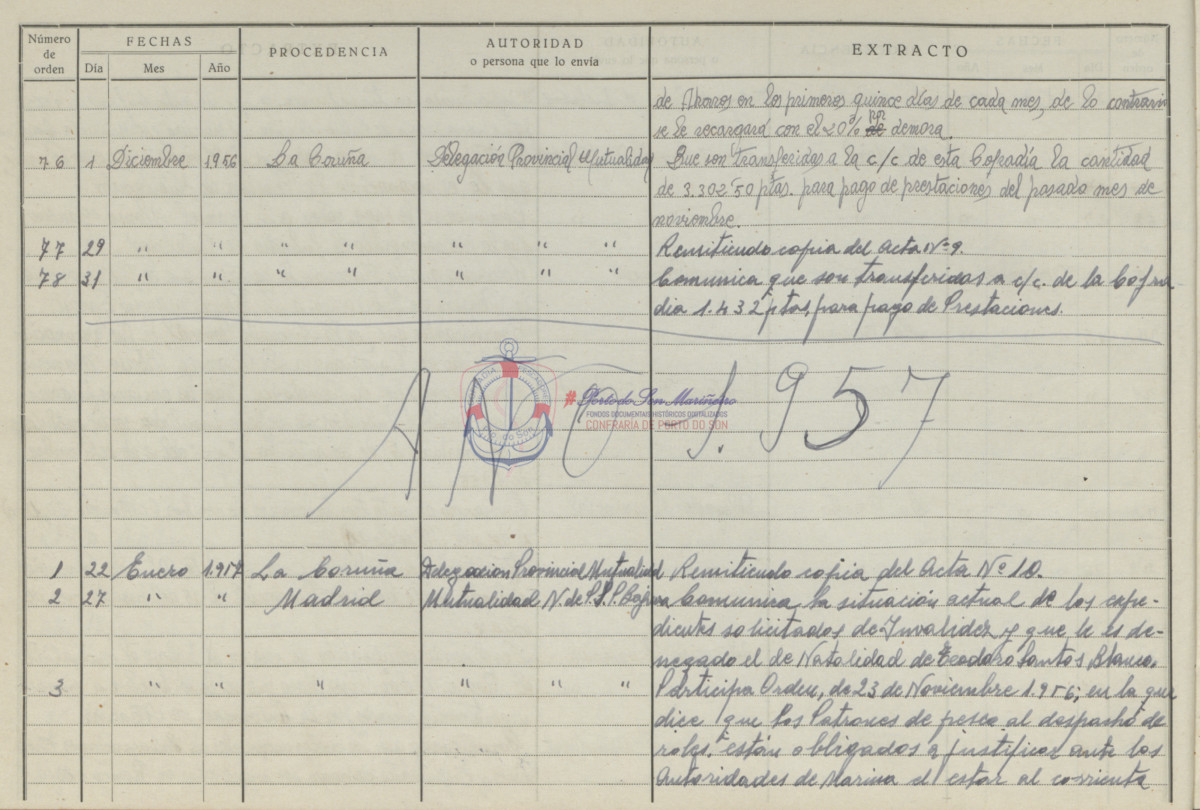 Número de orden FECHAS PROCEDENCIA AUTORIDAD o persona que lo envía EXTRACTO
Día Mes Año
de Ahorros en los primeros quince días de cada mes, de lo contrario
se le recargará con el 20% por demora.
76 1 Diciembre 1956 La Coruña Delegación Provincial Mutualidad Que son transferidas a la c/c de esta Cofradía la cantidad
de 3.302'50 ptas. para pago de prestaciones del pasado mes de
noviembre.
77 29 " " " " " " " Remitiendo copia del Acta Nº 9.
78 31 " " " " " " " Comunica que son transferidas a c/c. de la Cofra
dia 1.432 ptas, para pago de Prestaciones.
AÑO 1.957
Porto do Son Mariñeiro
FONDOS DOCUMENTAIS HISTÓRICOS DIGITALIZADOS
CONFRARÍA DE PORTO DO SON
1 22 Enero 1.957 La Coruña Delegacion Provincial Mutualidad Remitiendo copia del Acta Nº 10.
2 27 " " Madrid Mutualidad N. de P.S.P. Comunica la situación actual de los expe-
dientes solicitados de Invalidez y que le es de-
negado el de Natalidad de Teodoro Santos Blanco.
3 " " " " " " Participa Orden, de 23 de Noviembre 1.956; en la que
dice que los Patrones de pesca al despacho de
roles. están obligados a justificar ante las
Autoridades de Marina el estar al corriente